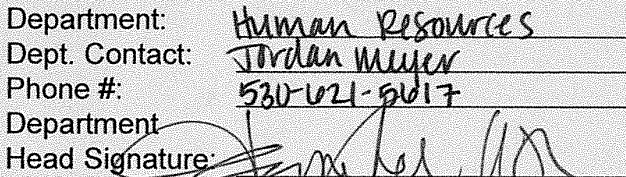 Department: Human Resources
Dept. Contact: Jordan Meyer
Phone #: 530-621-5617
Department
Head Signature: